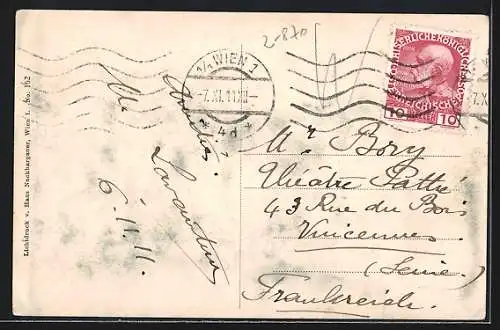 2-870
1/1 WIEN 1
-7.XI.11.XII-
* 4d *
KAISERLICHE KÖNIGLICHE
ÖSTERREICHISCHE POST
10 HELLER 10
7.X
Mr Bory
Théâtre Pathé
43 Rue du Bois
Vincennes
(Seine)
Frankreich.
6.11.11.
Lichtdruck v. Hans Nachbargauer, Wien I. No. 152